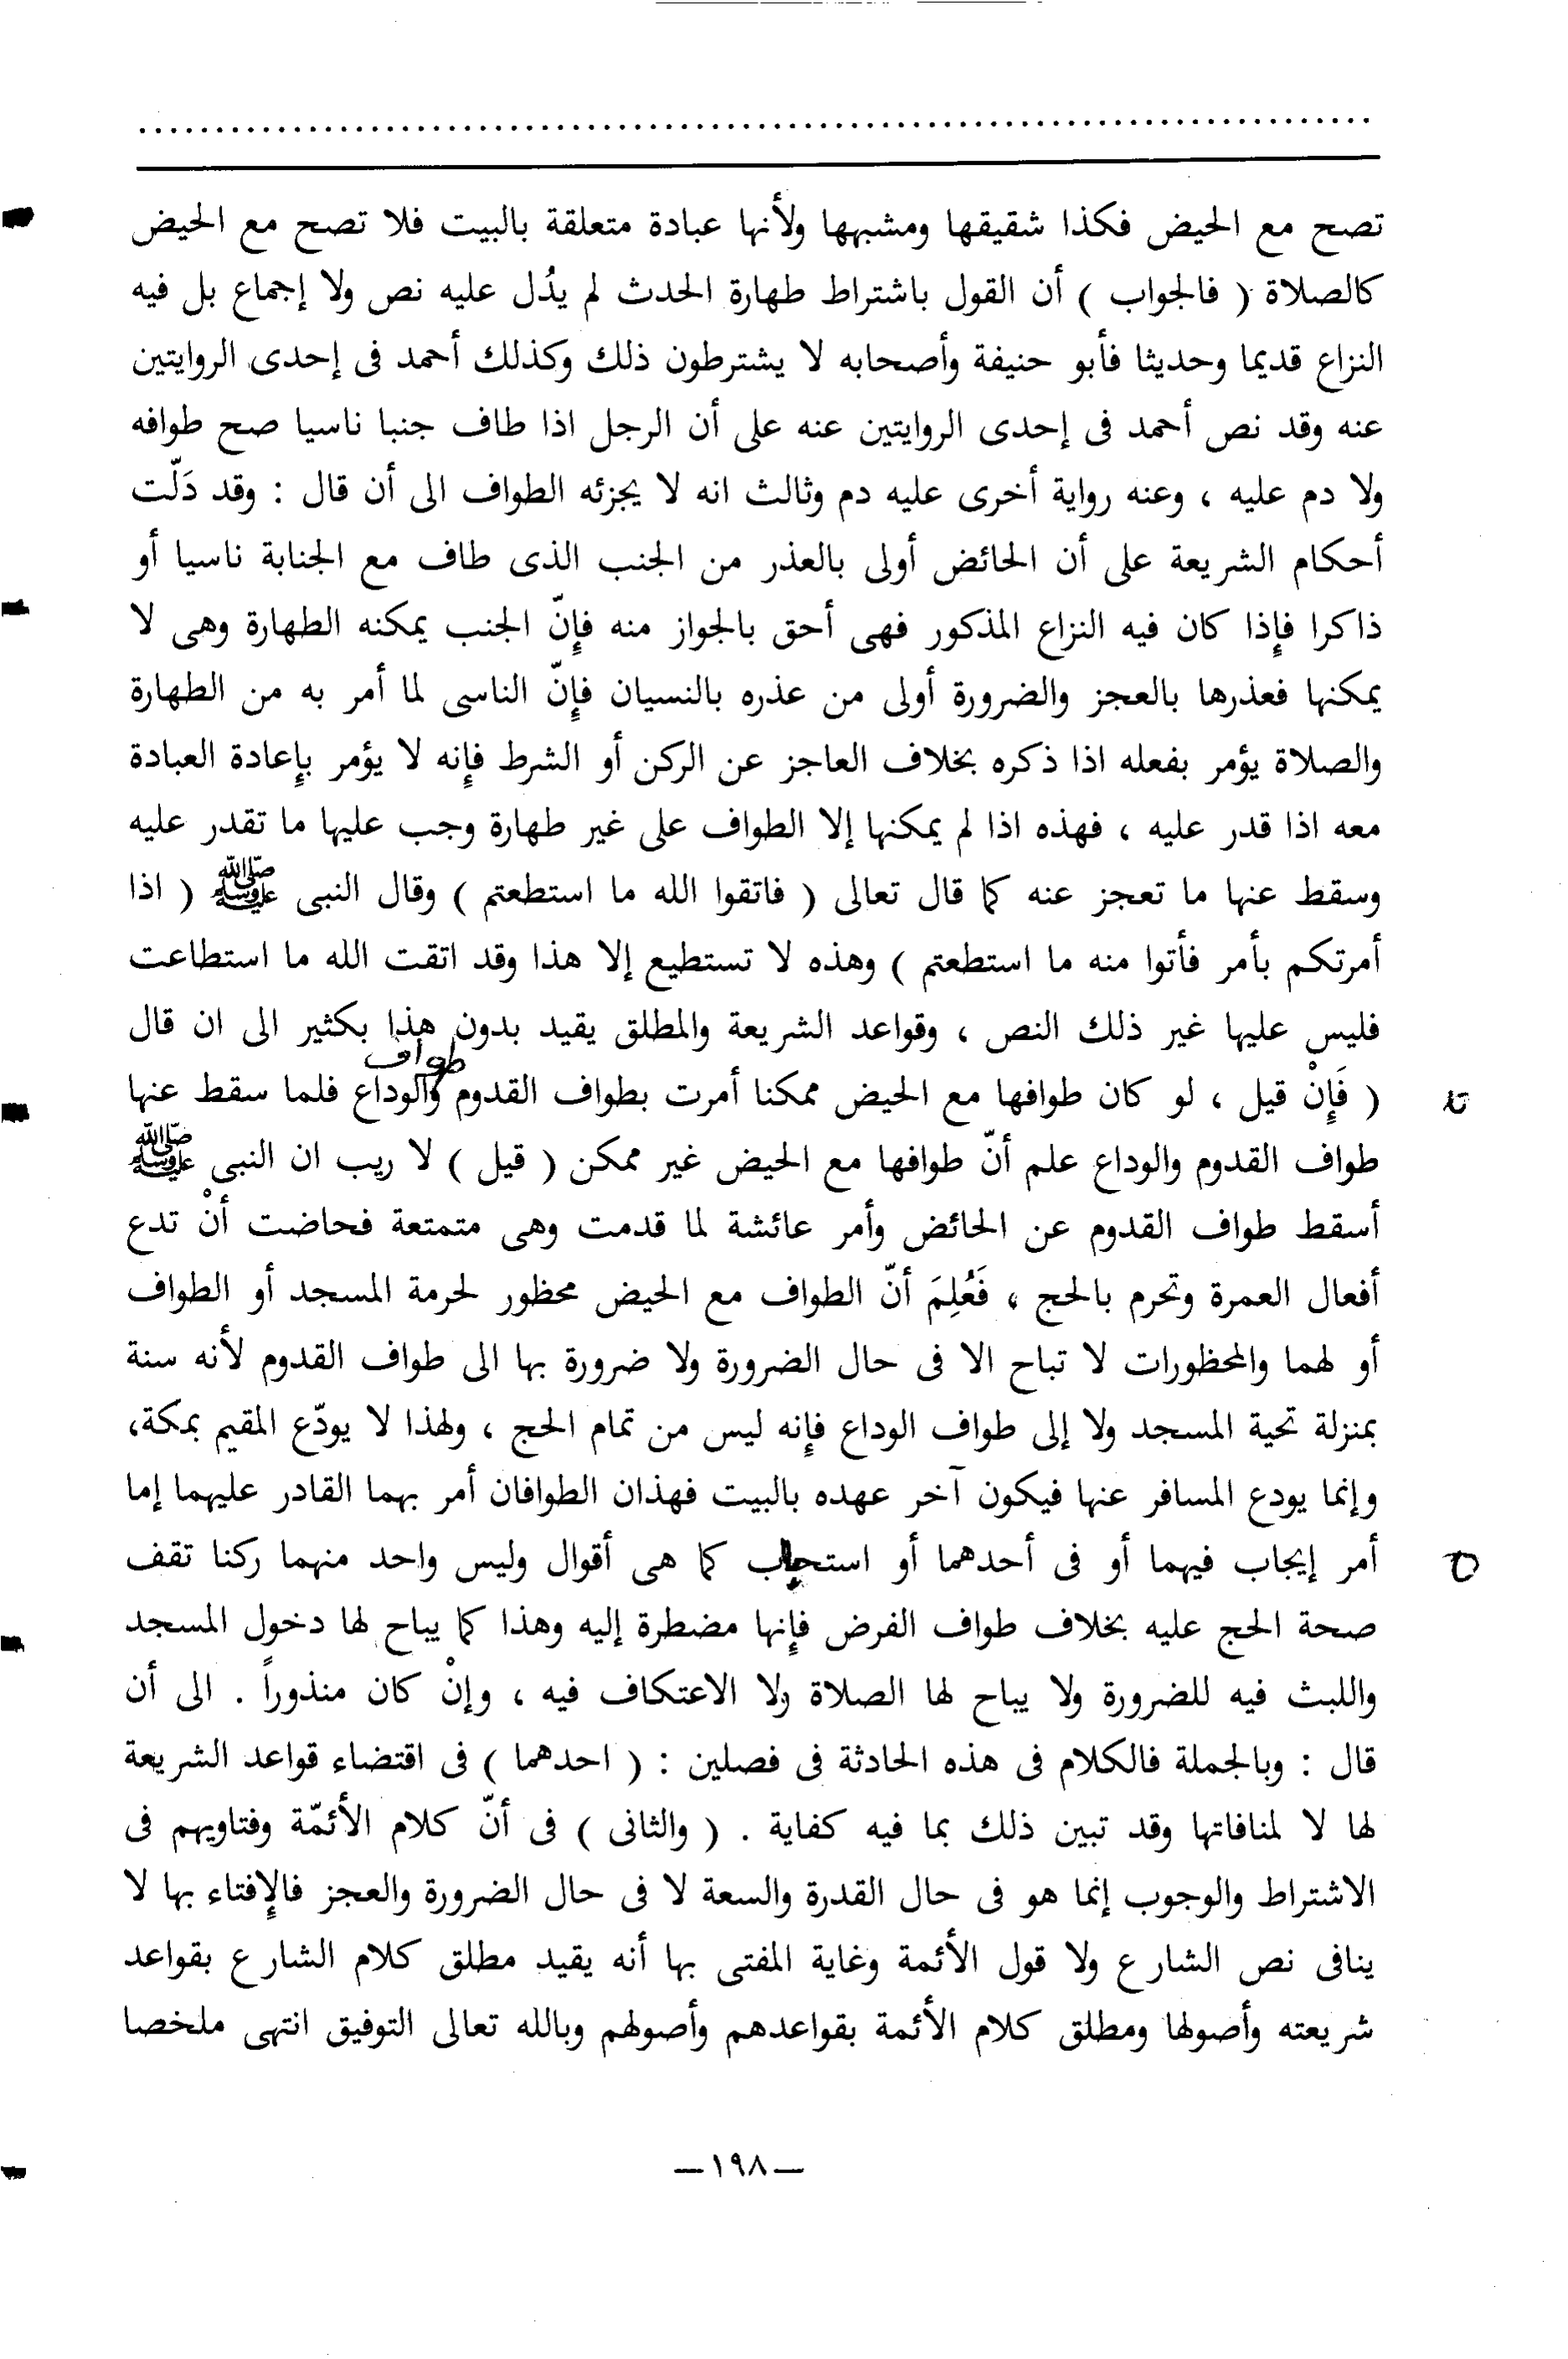 تصح مع الحيض فكذا شقيقها ومشبهها ولأنها عبادة متعلقة بالبيت فلا تصح مع الحيض
كالصلاة ( فالجواب ) أن القول باشتراط طهارة الحدث لم يدُل عليه نص ولا إجماع بل فيه
النزاع قديما وحديثا فأبو حنيفة وأصحابه لا يشترطون ذلك وكذلك أحمد فى إحدى الروايتين
عنه وقد نص أحمد فى إحدى الروايتين عنه على أن الرجل اذا طاف جنبا ناسيا صح طوافه
ولا دم عليه ، وعنه رواية أخرى عليه دم وثالث انه لا يجزئه الطواف الى أن قال : وقد دَلّت
أحكام الشريعة على أن الحائض أولى بالعذر من الجنب الذى طاف مع الجنابة ناسيا أو
ذاكرا فإذا كان فيه النزاع المذكور فهى أحق بالجواز منه فإنّ الجنب يمكنه الطهارة وهى لا
يمكنها فعذرها بالعجز والضرورة أولى من عذره بالنسيان فإنّ الناسى لما أمر به من الطهارة
والصلاة يؤمر بفعله اذا ذكره بخلاف العاجز عن الركن أو الشرط فإنه لا يؤمر بإعادة العبادة
معه اذا قدر عليه ، فهذه اذا لم يمكنها إلا الطواف على غير طهارة وجب عليها ما تقدر عليه
وسقط عنها ما تعجز عنه كما قال تعالى ( فاتقوا الله ما استطعتم ) وقال النبى ﷺ ( اذا
أمرتكم بأمر فأتوا منه ما استطعتم ) وهذه لا تستطيع إلا هذا وقد اتقت الله ما استطاعت
فليس عليها غير ذلك النص ، وقواعد الشريعة والمطلق يقيد بدون هذا بكثير الى ان قال
طواف
( فَإِنْ قيل ، لو كان طوافها مع الحيض ممكنا أمرت بطواف القدوم والوداع فلما سقط عنها
طواف القدوم والوداع علم أنّ طوافها مع الحيض غير ممكن ( قيل ) لا ريب ان النبى ﷺ
أسقط طواف القدوم عن الحائض وأمر عائشة لما قدمت وهى متمتعة فحاضت أنْ تدع
أفعال العمرة وتحرم بالحج ، فَعُلِمَ أنّ الطواف مع الحيض محظور لحرمة المسجد أو الطواف
أو لهما والمحظورات لا تباح الا فى حال الضرورة ولا ضرورة بها الى طواف القدوم لأنه سنة
بمنزلة تحية المسجد ولا إلى طواف الوداع فإنه ليس من تمام الحج ، ولهذا لا يودّع المقيم بمكة،
وإنما يودع المسافر عنها فيكون آخر عهده بالبيت فهذان الطوافان أمر بهما القادر عليهما إما
أمر إيجاب فيهما أو فى أحدهما أو استحباب كما هى أقوال وليس واحد منهما ركنا تقف
صحة الحج عليه بخلاف طواف الفرض فإنها مضطرة إليه وهذا كما يباح لها دخول المسجد
واللبث فيه للضرورة ولا يباح لها الصلاة ولا الاعتكاف فيه ، وإنْ كان منذوراً . الى أن
قال : وبالجملة فالكلام فى هذه الحادثة فى فصلين : ( احدهما ) فى اقتضاء قواعد الشريعة
لها لا لمنافاتها وقد تبين ذلك بما فيه كفاية . ( والثانى ) فى أنّ كلام الأئمّة وفتاويهم فى
الاشتراط والوجوب إنما هو فى حال القدرة والسعة لا فى حال الضرورة والعجز فالإفتاء بها لا
ينافى نص الشارع ولا قول الأئمة وغاية المفتى بها أنه يقيد مطلق كلام الشارع بقواعد
شريعته وأصولها ومطلق كلام الأئمة بقواعدهم وأصولهم وبالله تعالى التوفيق انتهى ملخصا
—١٩٨—